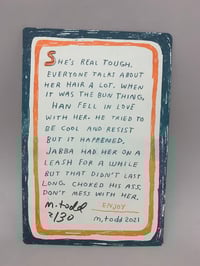 SHE'S REAL TOUGH.
EVERYONE TALKS ABOUT
HER HAIR A LOT. WHEN
IT WAS THE BUN THING,
HAN FELL IN LOVE
WITH HER. HE TRIED TO
BE COOL AND RESIST
BUT IT HAPPENED.
JABBA HAD HER ON A
LEASH FOR A WHILE
BUT THAT DIDN'T LAST
LONG. CHOKED HIS ASS.
DON'T MESS WITH HER.
m.todd ENJOY
2/30 m.todd 2021